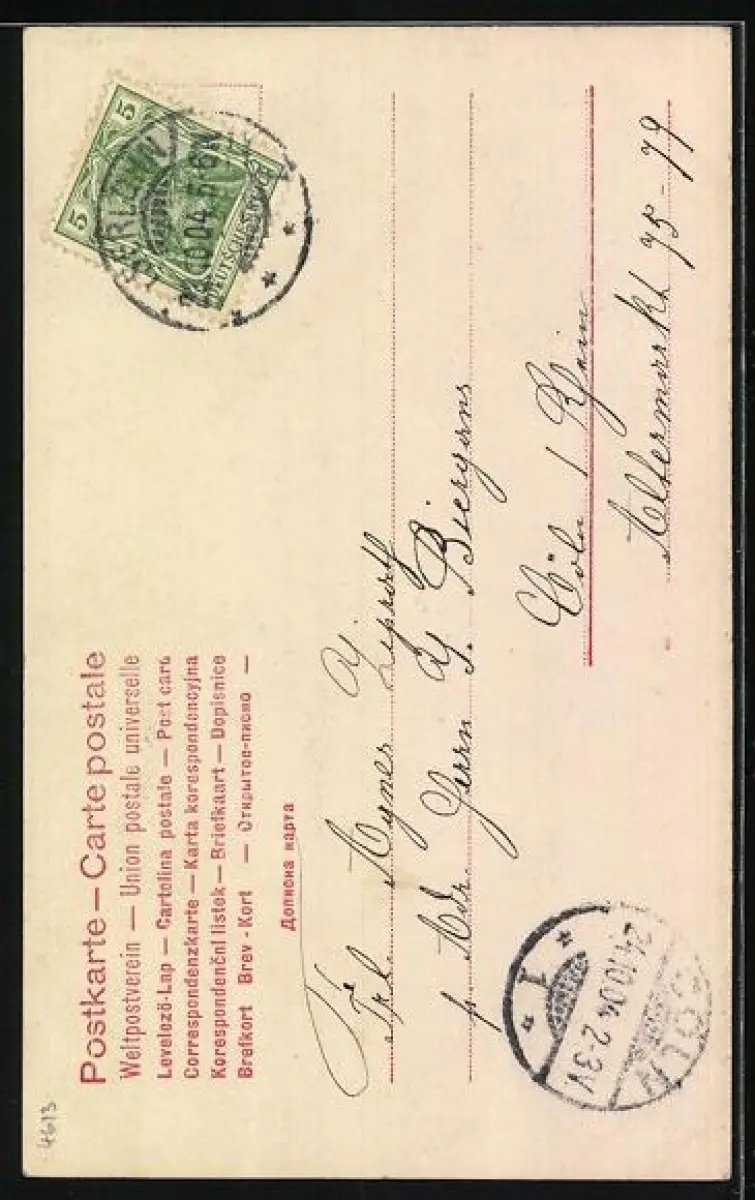 Postkarte — Carte postale
Weltpostverein — Union postale universelle
Levelező-Lap — Cartolina postale — Post card
Correspondenzkarte — Karta korespondencyjna
Korespondenční listek — Briefkaart — Dopisnice
Brefkort Brev-Kort — Открытое-письмо —
Дописна карта
5 5
DEUTSCHES REICH
ISERLOHN
10.04.5-6N
Frl. Agnes
p Adr. Herrn Biergans
Cöln / Rhein
Altermarkt 75-79
CÖLN
1
24.10.04.2-3V.
4613